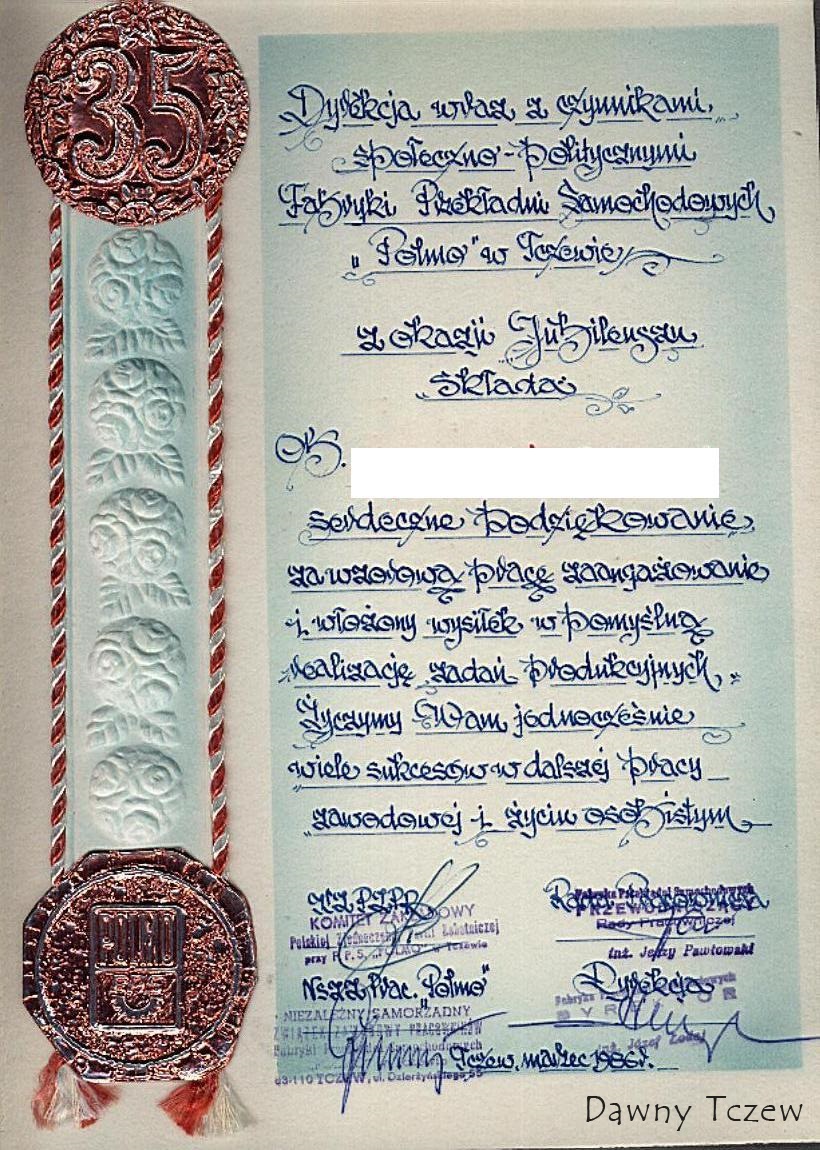 35
Dyrekcja wraz z czynnikami
społeczno-politycznymi
Fabryki Przekładni Samochodowych
„Polmo" w Tczewie
z okazji Jubileuszu
składa
Ob.
serdeczne podziękowanie
za wzorową pracę zaangażowanie
i włożony wysiłek w pomyślną
realizację zadań produkcyjnych.
Życzymy Wam jednocześnie
wiele sukcesów w dalszej pracy
zawodowej i życiu osobistym
KZ PZPR
KOMITET ZAKŁADOWY
Polskiej Zjednoczonej Partii Robotniczej
przy F.P.S. „POLMO" w Tczewie
Rada Pracownicza
Fabryka Przekładni Samochodowych
PRZEWODNICZĄCY
Rady Pracowniczej
inż. Jerzy Pawłowski
NSZZ Prac. "Polmo"
NIEZALEŻNY SAMORZĄDNY
ZWIĄZEK ZAWODOWY PRACOWNIKÓW
Fabryki Samochodowych
83-110 TCZEW, ul. Dzierżyńskiego
Dyrekcja
Fabryka Samochodowych
DYREKTOR
inż. Józef
Tczew, marzec 1986r.
POLMO
Dawny Tczew